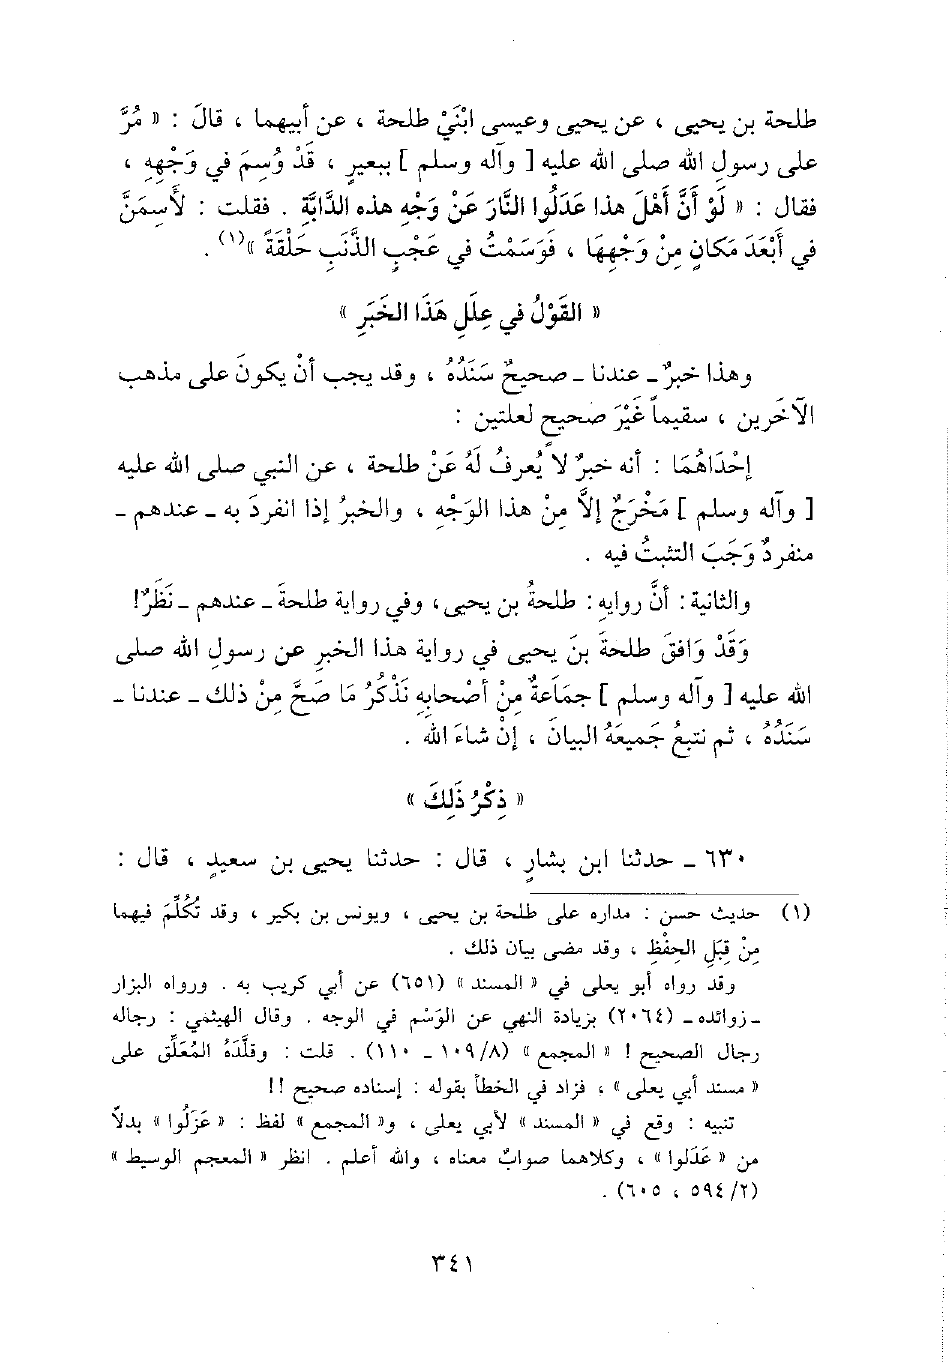 طلحة بن يحيى ، عن يحيى وعيسى ابْنَيْ طلحة ، عن أبيهما ، قالَ : « مُرَّ
على رسولِ الله صلى الله عليه [ وآله وسلم ] ببعيرٍ ، قَدْ وُسِمَ في وَجْهِهِ ،
فقال : « لَوْ أَنَّ أَهْلَ هذا عَدَلُوا النَّارَ عَنْ وَجْهِ هذه الدَّابَّةِ . فقلت : لأَسِمَنَّ
في أَبْعَدَ مَكانٍ مِنْ وَجْهِهَا ، فَوَسَمْتُ في عَجْبِ الذَّنَبِ حَلْقَةً »(١) .
« القَوْلُ في عِلَلِ هَذَا الخَبَرِ »
وهذا خبرٌ ـ عندنا ـ صحيحٌ سَنَدُهُ ، وقد يجب أنْ يكونَ على مذهب
الآخَرين ، سقيماً غَيْرَ صحيحٍ لعلتين :
إحْدَاهُمَا : أنه خبرٌ لا يُعرفُ لَهُ عَنْ طلحة ، عن النبي صلى الله عليه
[ وآله وسلم ] مَخْرَجٌ إلاَّ مِنْ هذا الوَجْهِ ، والخبرُ إذا انفردَ به ـ عندهم ـ
منفردٌ وَجَبَ التثبتُ فيه .
والثانية : أنَّ روايه : طلحةُ بن يحيى ، وفي رواية طلحةَ ـ عندهم ـ نَظَرٌ !
وَقَدْ وَافَقَ طلحةَ بنَ يحيى في رواية هذا الخبرِ عن رسولِ الله صلى
الله عليه [ وآله وسلم ] جمَاعةٌ مِنْ أصْحابِهِ نَذْكُرُ مَا صَحَّ مِنْ ذلك ـ عندنا ـ
سَنَدُهُ ، ثم نتبعُ جَميعَهُ البيانَ ، إنْ شاءَ الله .
« ذِكْرُ ذَلِكَ »
٦٣٠ ـ حدثنا ابن بشارٍ ، قال : حدثنا يحيى بن سعيدٍ ، قال :
(١) حديث حسن : مداره على طلحة بن يحيى ، ويونس بن بكير ، وقد تُكُلِّمَ فيهما
مِنْ قِبَلِ الحِفْظِ ، وقد مضى بيان ذلك .
وقد رواه أبو يعلى في « المسند » (٦٥١) عن أبي كريب به . ورواه البزار
ـ زوائده ـ (٢٠٦٤) بزيادة النهي عن الوَسْم في الوجه . وقال الهيثمي : رجاله
رجال الصحيح ! « المجمع » (٨/١٠٩ ـ ١١٠) . قلت : وقلَّدَهُ المُعَلِّق على
« مسند أبي يعلى » ، فزاد في الخطأ بقوله : إسناده صحيح !!
تنبيه : وقع في « المسند » لأبي يعلى ، و« المجمع » لفظ : « عَزَلُوا » بدلاً
من « عَدَلوا » ، وكلاهما صوابٌ معناه ، والله أعلم . انظر « المعجم الوسيط »
(٢/٥٩٤ ، ٦٠٥) .
٣٤١